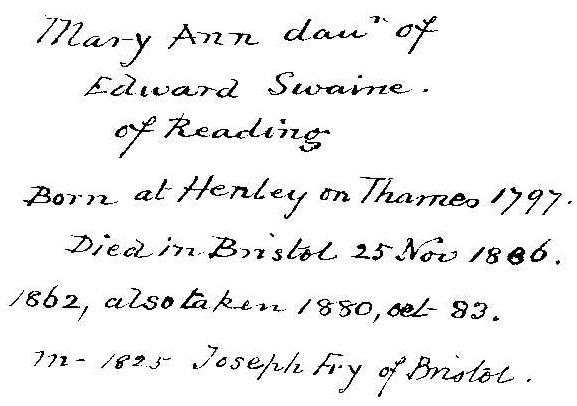 Mary Ann dauʳ of
Edward Swaine.
of Reading
Born at Henley on Thames 1797.
Died in Bristol 25 Nov 1886.
1862, also taken 1880, æt 83.
m- 1825 Joseph Fry of Bristol.